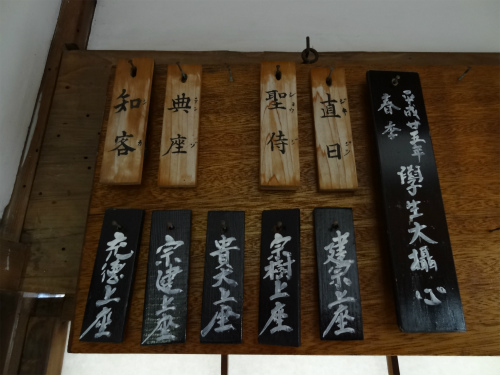 平成廿五年
春季
學生大攝心
直日
聖侍
典座
知客
建宗上座
宗樹上座
貴大上座
宗建上座
充德上座